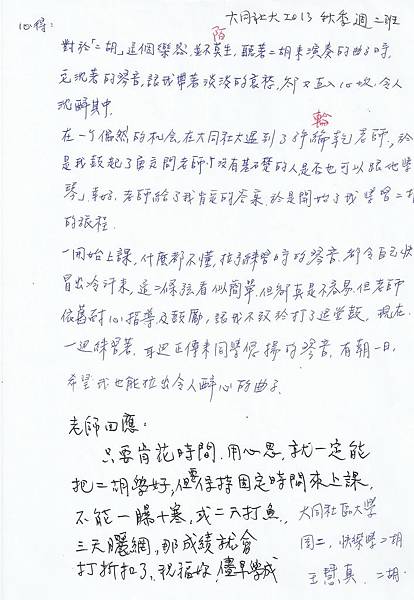 心得：
大同社大2013 秋季週二班
陌
對於「二胡」這個樂器，並不莫生，聽著二胡來演奏的曲子時，
沉著的琴音，讓我帶著淡淡的哀愁，卻又直入心坎，令人
沉醉其中。
輪
在一個偶然的機會，在大同社大遇到了綸乾老師，於
是我鼓起了勇氣問老師：「沒有基礎的人是否也可以跟他學
琴」，幸好，老師給了我肯定的答案，於是開始了我學習二胡
的旅程。
一開始上課，什麼都不懂，拉手練習時的琴音，都令自己快
冒出冷汗來，這二條弦看似簡單，但卻真是不容易，但老師
依舊耐心指導及鼓勵，讓我不致於打了退堂鼓，現在，
一邊練習著，耳邊正傳來同學悠揚的琴音，有朝一日，
希望我也能拉出令人醉心的曲子。
老師回應：
只要肯花時間，用心思，就一定能
把二胡學好，但要保持固定時間來上課，
不能一曝十寒，或二天打魚，
三天曬網，那成績就會
打折扣了，祝福妳，儘早學成
大同社區大學
周二，快樂學二胡
王慧真 二胡